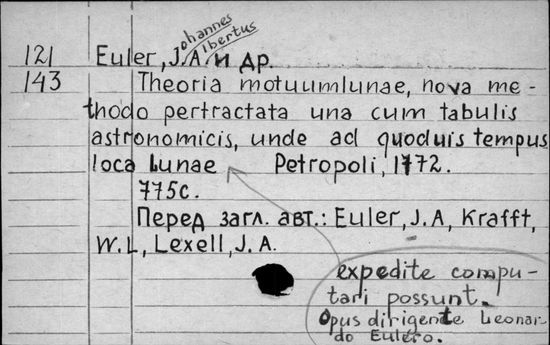 ohannes
lbertus
121 Euler, J. A. и др.
143 Theoria motuumlunae, nova me-
thodo pertractata una cum tabulis
astronomicis, unde ad quoduis tempus
loca Lunae Petropoli, 1772.
775с.
Перед загл. авт.: Euler, J. A, Krafft,
W. L, Lexell, J. A.
expedite compu-
tari possunt.
Opus dirigente Leonar
do Eulero.